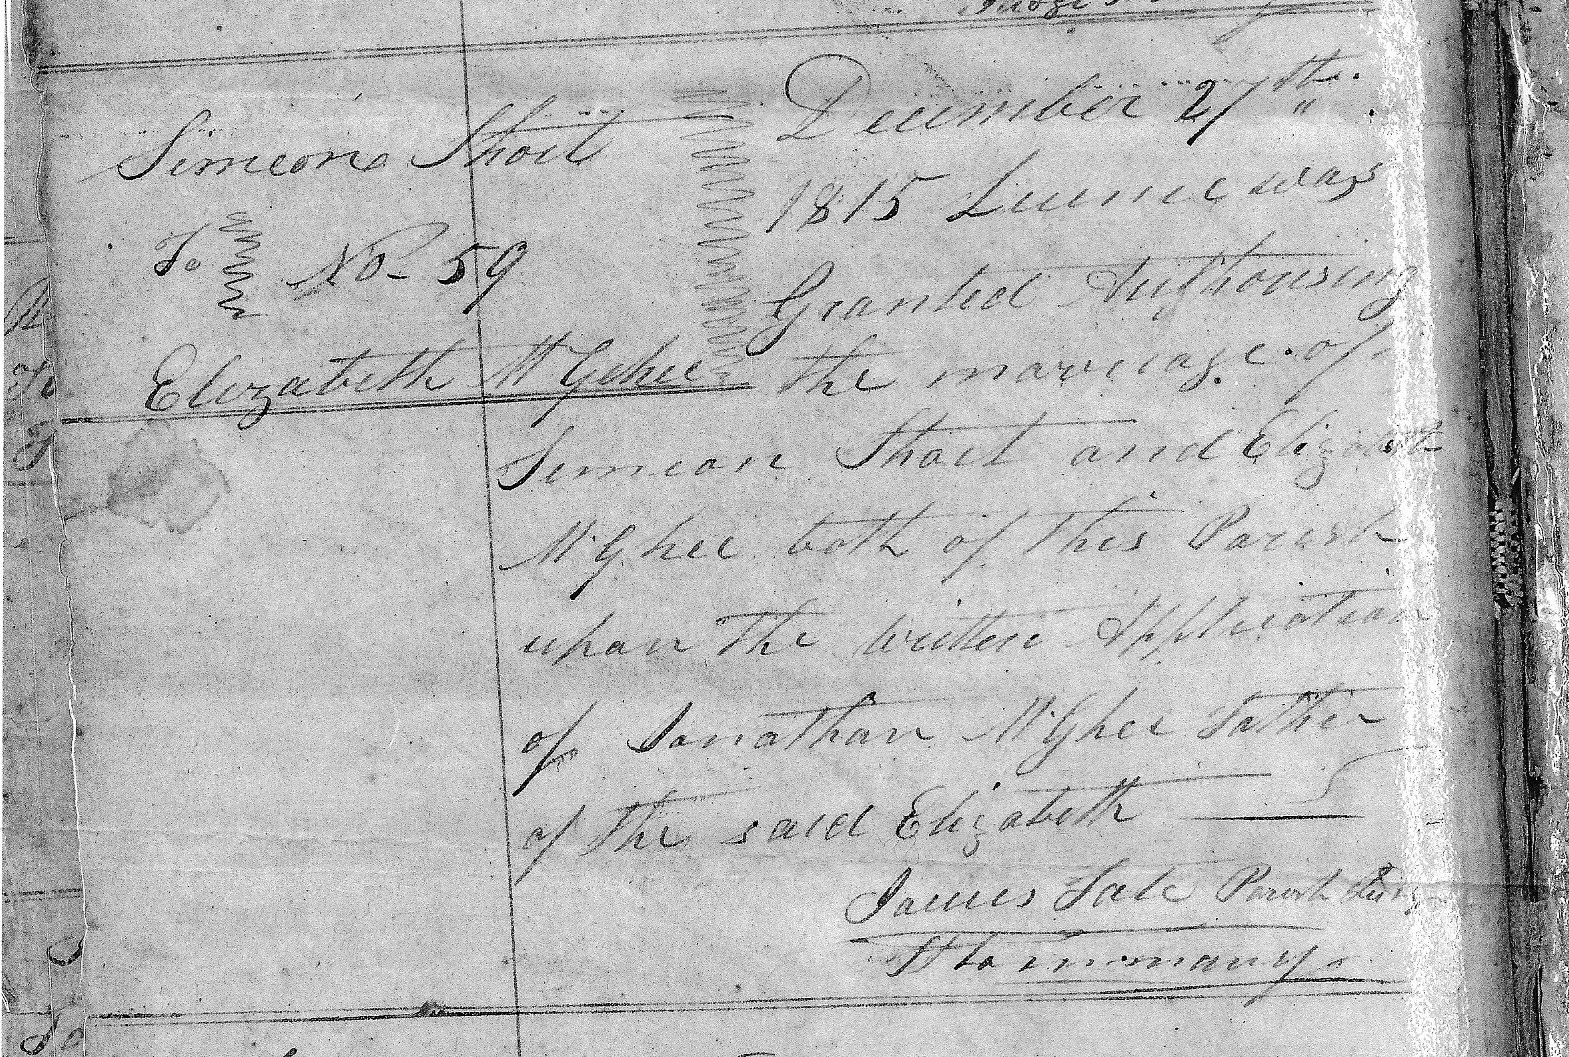 Simeon Short
To No. 59
Elizabeth McGehee
December 27th
1815 Licence was
Granted Authorising
the marriage of
Simeon Short and Elizabeth
McGhee both of this Parish
upon the written Application
of Jonathan McGhee Father
of the said Elizabeth
James Tate Parish Judge
St tammany